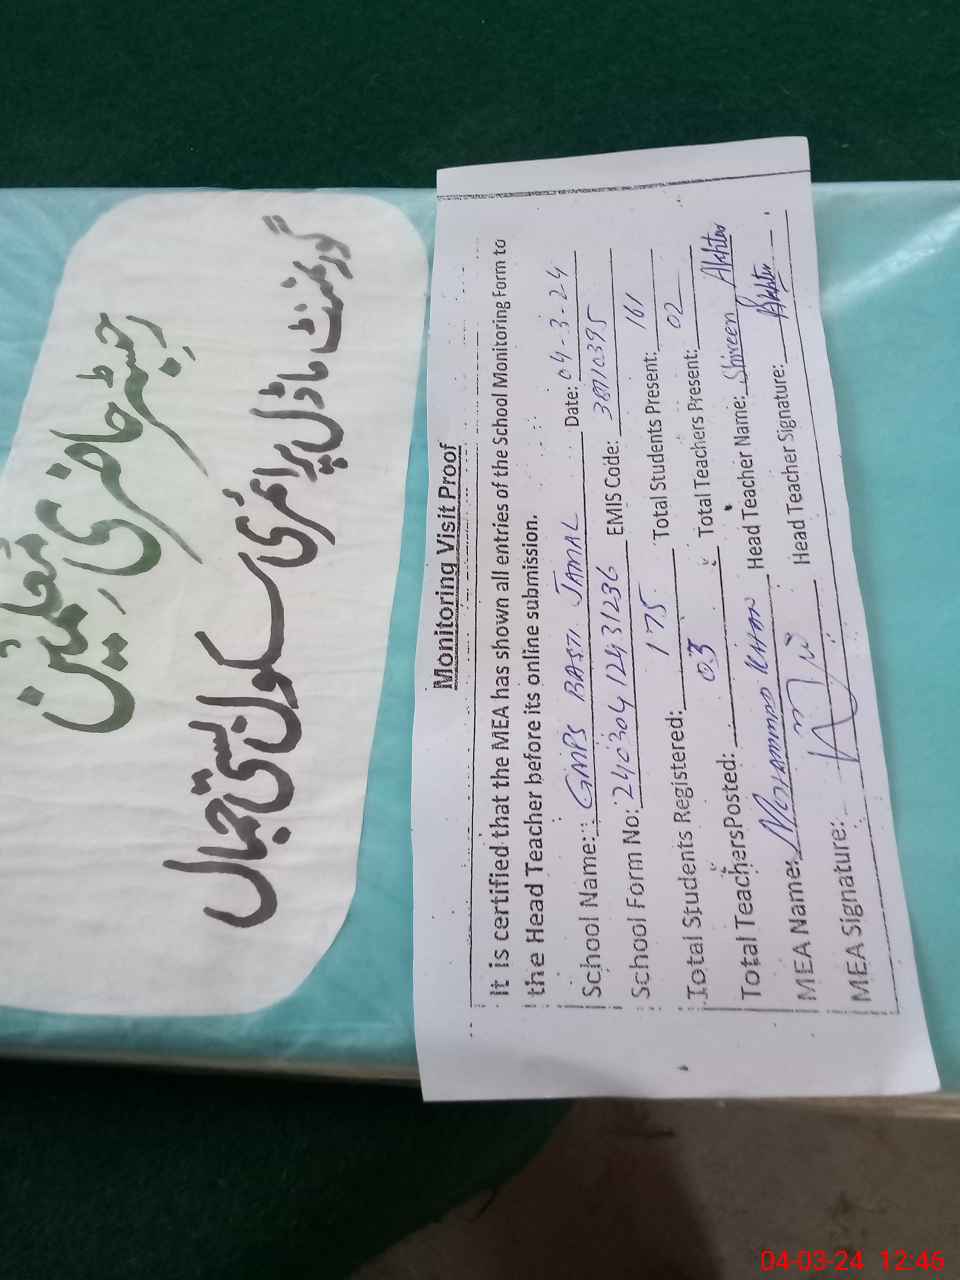 رجسٹر حاضری معلمین
گورنمنٹ ماڈل پرائمری سکول بستی جمال
Monitoring Visit Proof
It is certified that the MEA has shown all entries of the School Monitoring Form to
the Head Teacher before its online submission.
School Name: GMPS BASTI JAMAL Date: 04-3-24
School Form No: 24030412431236 EMIS Code: 38110395
Total Students Registered: 175 Total Students Present: 161
Total TeachersPosted: 03 Total Teachers Present: 02
MEA Name: MOHAMMAD KHAN Head Teacher Name: Shireen Akhtar
MEA Signature: Head Teacher Signature: Akhtar
04-03-24 12:46